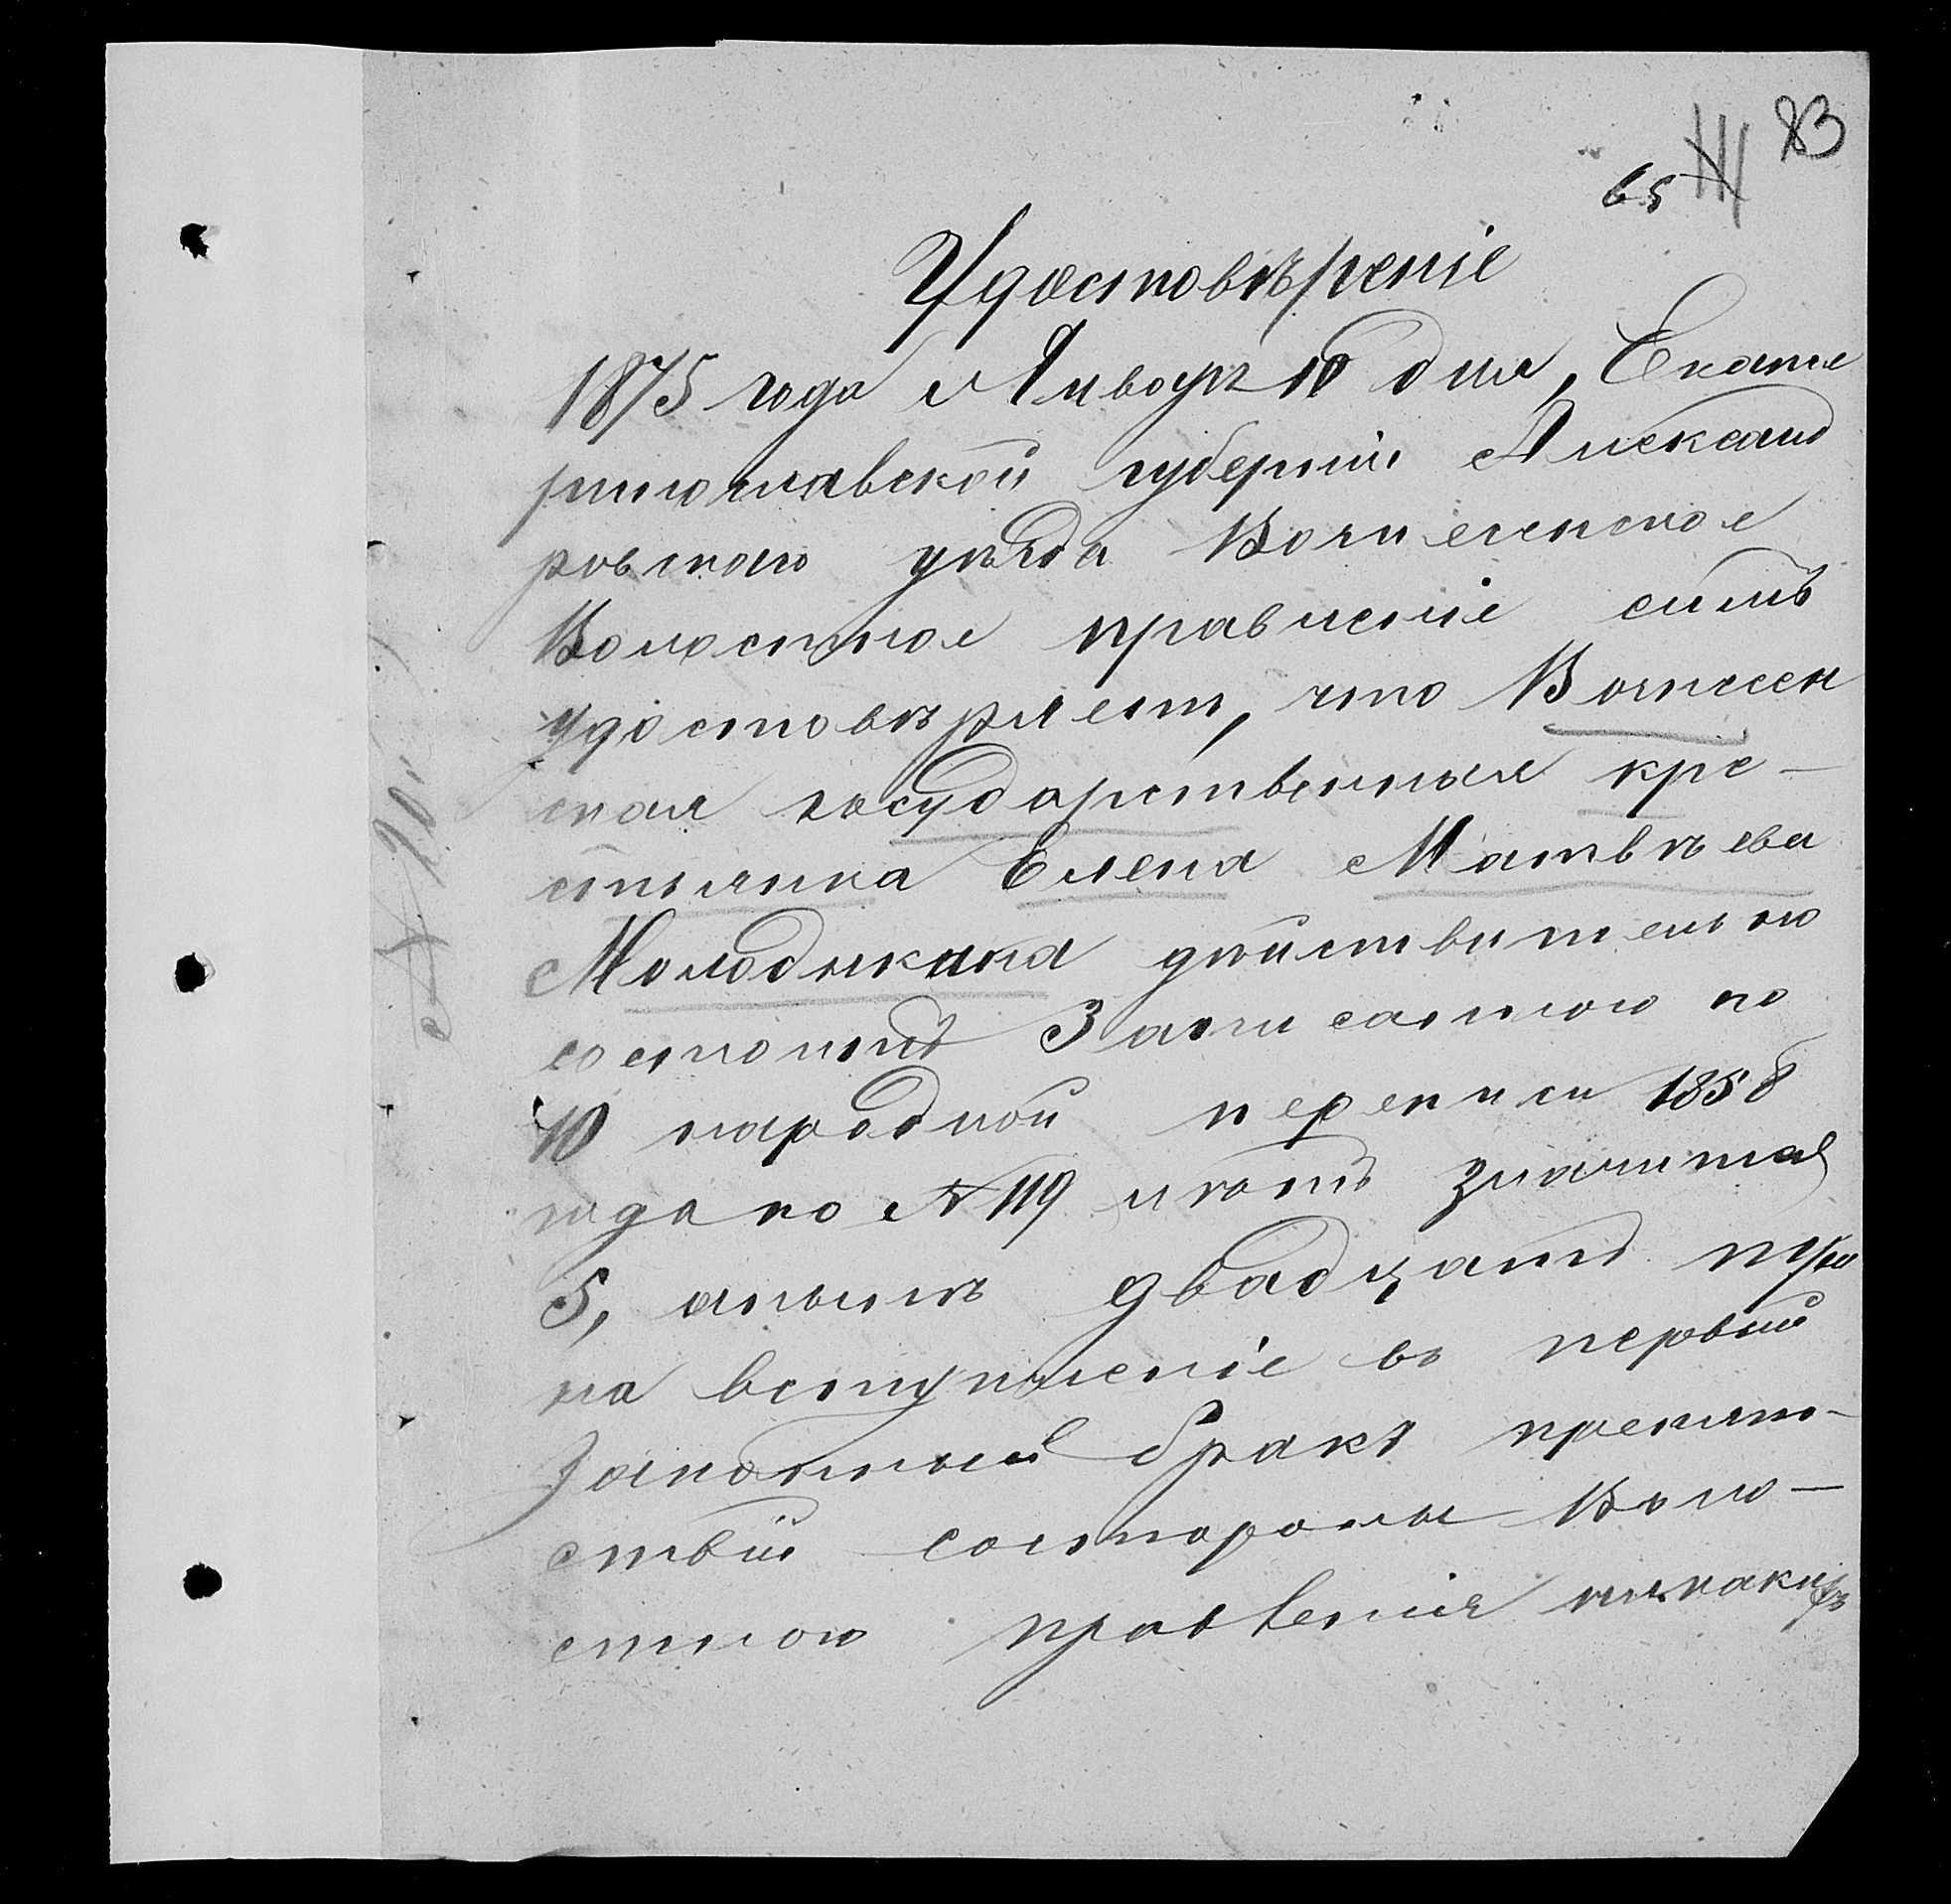 83
65
Удостовѣреніе
1875 года Января 10 дня, Екате
ринославской губерніи Александ
ровскаго уѣзда Вознесенское
Волостное правленіе симъ
удостовѣряетъ, что Вознесен
ская государственная кре-
стьянка Елена Матвѣева
Молодыкина дѣйствительно
состоитъ Записанною по
10 народной переписи 1858
года по № 119 лѣтъ значится
5, анынѣ двадцать
на вступленіе въ первый
законный бракъ препят-
ствій состороны Воло-
стного правленія никакихъ
№ 20